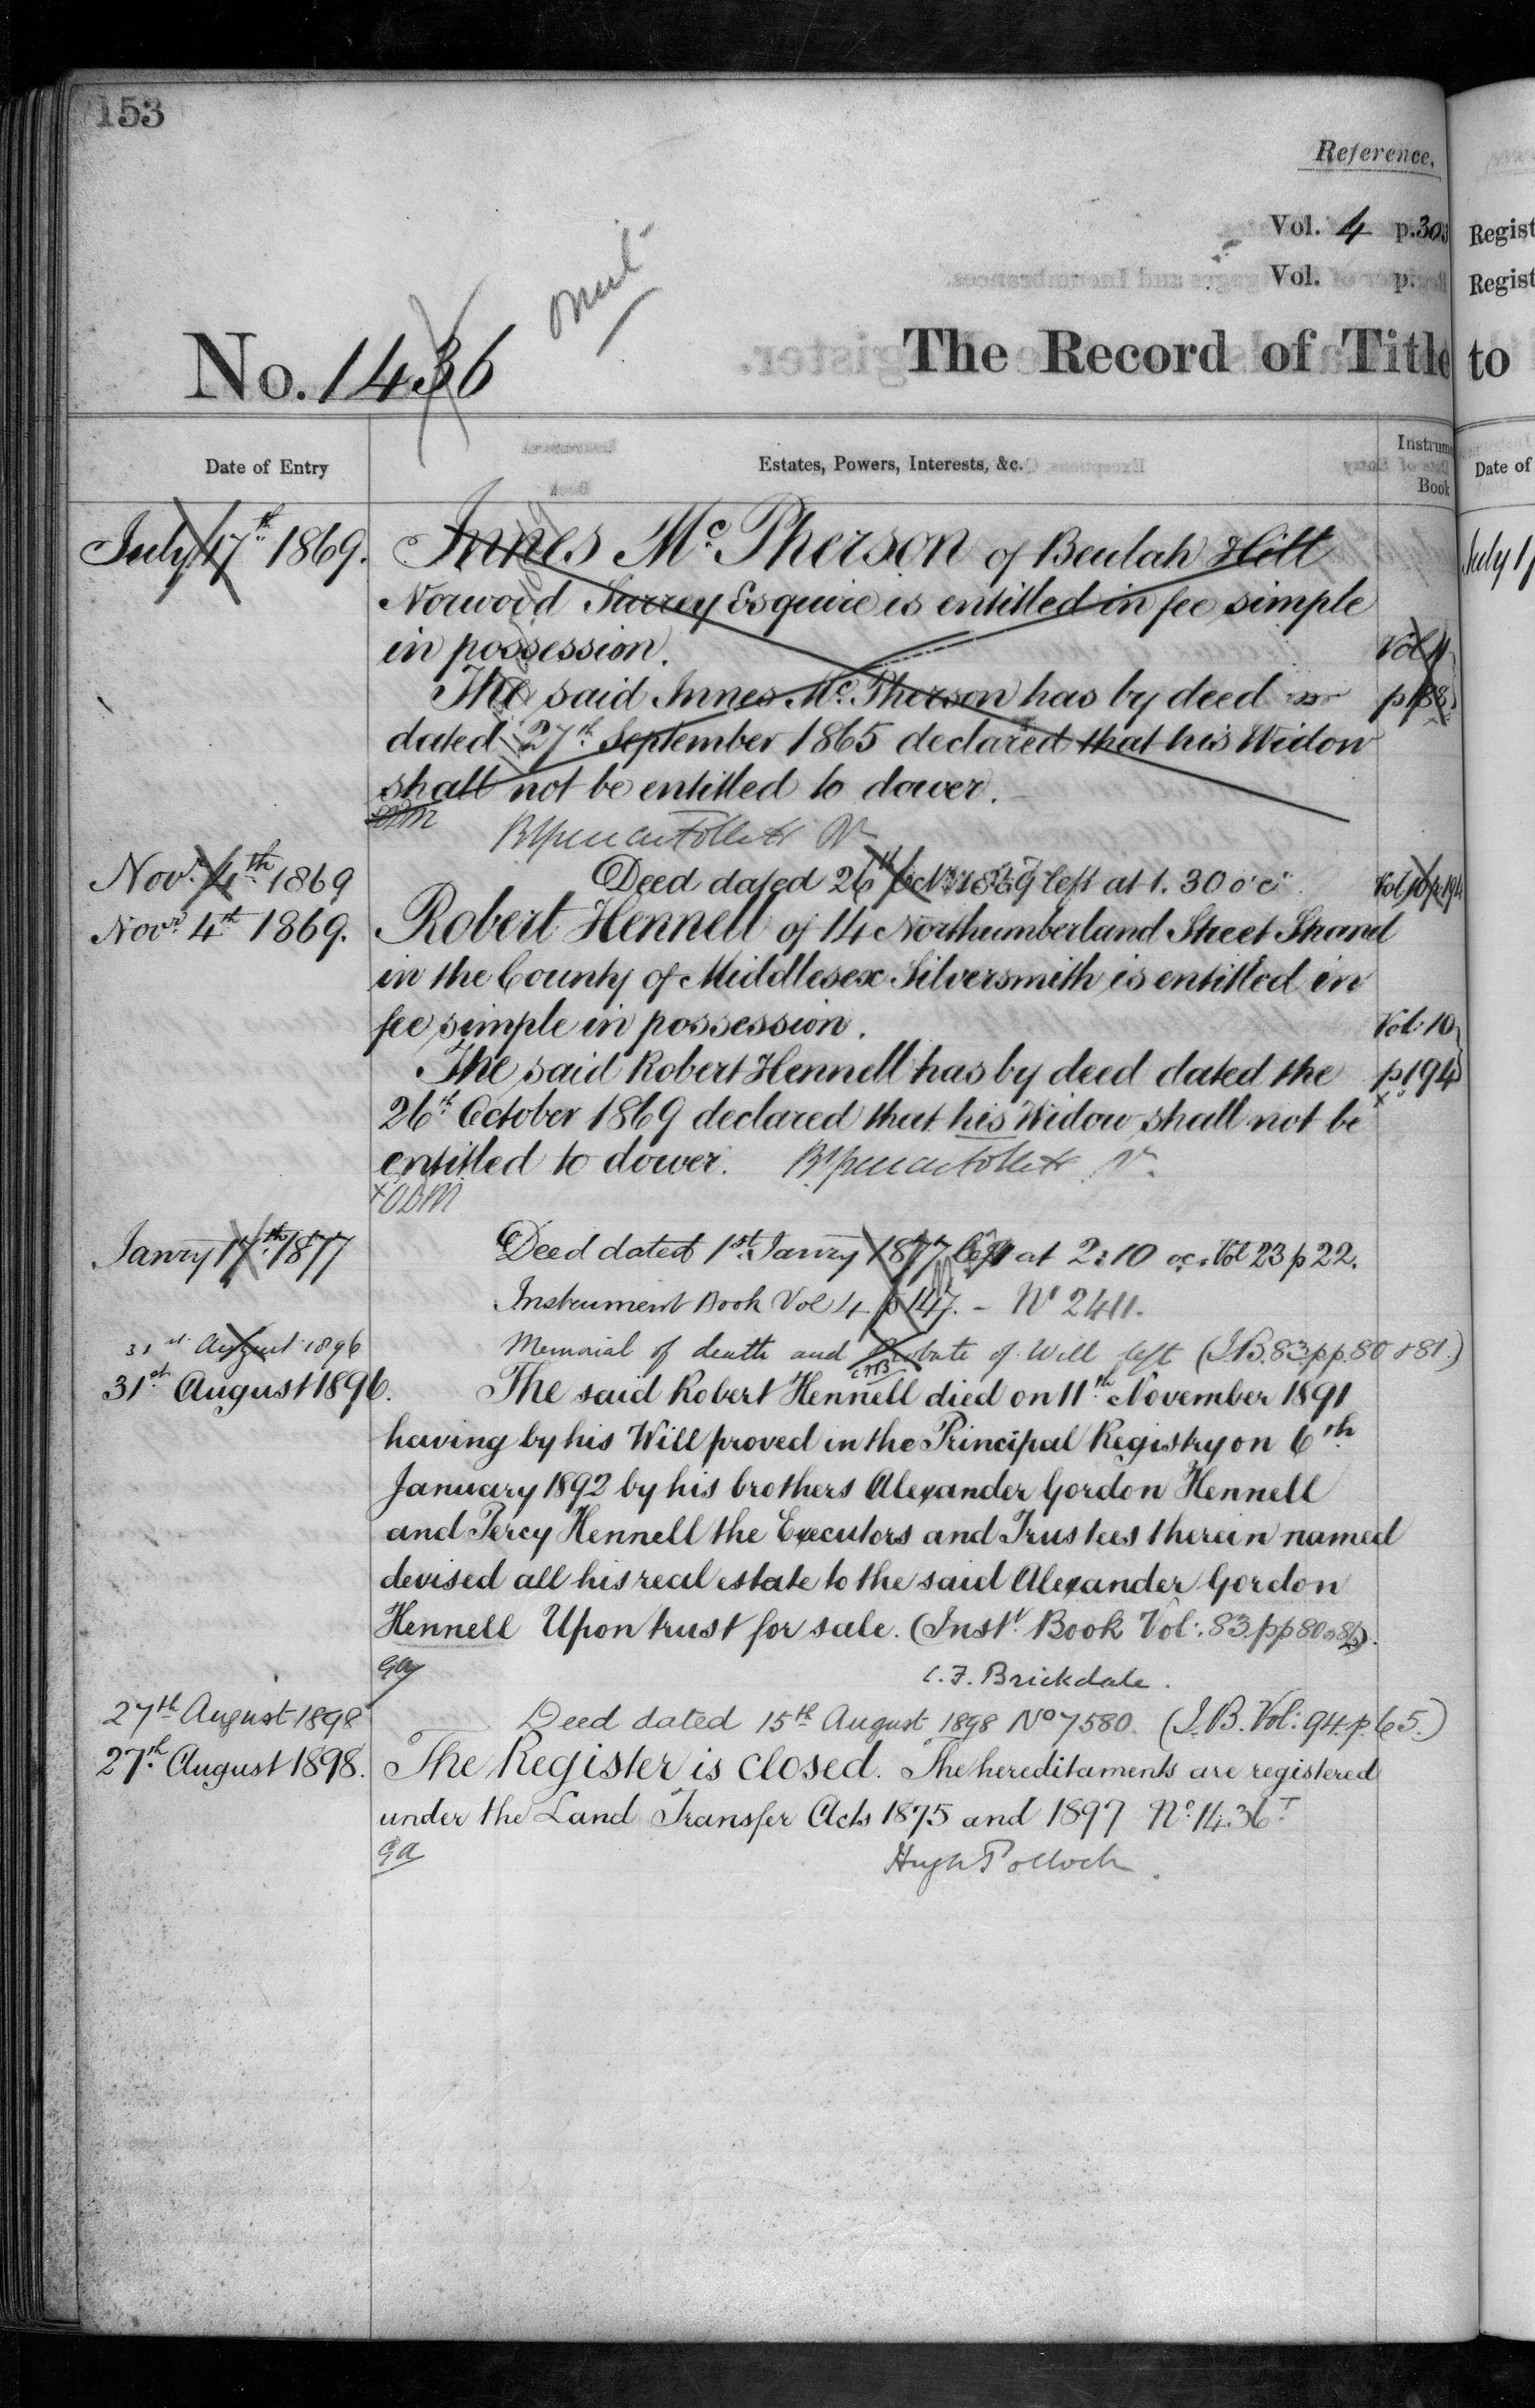 153
Reference.
Vol. 4 p. 303
Vol. p.
omit
No. 1436
The Record of Title to
Date of Entry
Estates, Powers, Interests, &c.
Book
July 17th 1869.
Innes McPherson of Beulah Hill
Norwood Surrey Esquire is entitled in fee simple
in possession.
Vol 4
The said Innes Mc.Pherson has by deed
dated 27th September 1865 declared that his Widow
shall not be entitled to dower.
Novr. 4th 1869
Deed dated 26th Octr. 1869 left at 1.30 o'c
Vol 10 p 194
Novr. 4th 1869.
Robert Hennell of 14 Northumberland Street Strand
in the County of Middlesex Silversmith is entitled in
fee simple in possession.
Vol: 10
The said Robert Hennell has by deed dated the
p. 194
26th October 1869 declared that his Widow shall not be
entitled to dower.
Janry 17th 1877
Deed dated 1st Janry 1877 left at 2:10 oc. Vol 23 p 22.
Instrument Book Vol 4. p 147. - No 2411.
31st August 1896
Memorial of death and Probate of Will left (I.B. 83 pp. 80 & 81.)
31st August 1896.
The said Robert Hennell died on 11th November 1891
having by his Will proved in the Principal Registry on 6th
January 1892 by his brothers Alexander Gordon Hennell
and Percy Hennell the Executors and Trustees therein named
devised all his real estate to the said Alexander Gordon
Hennell Upon trust for sale. (Inst. Book Vol: 83 pp 80 & 81).
C. F. Brickdale.
27th August 1898
Deed dated 15th August 1898 No 7580. (I.B. Vol: 94. p. 65.)
27th August 1898.
The Register is closed. The hereditaments are registered
under the Land Transfer Acts 1875 and 1897 No. 1436T
GA
Hugh Pollock.
Regist
Regist
Date of
July 17